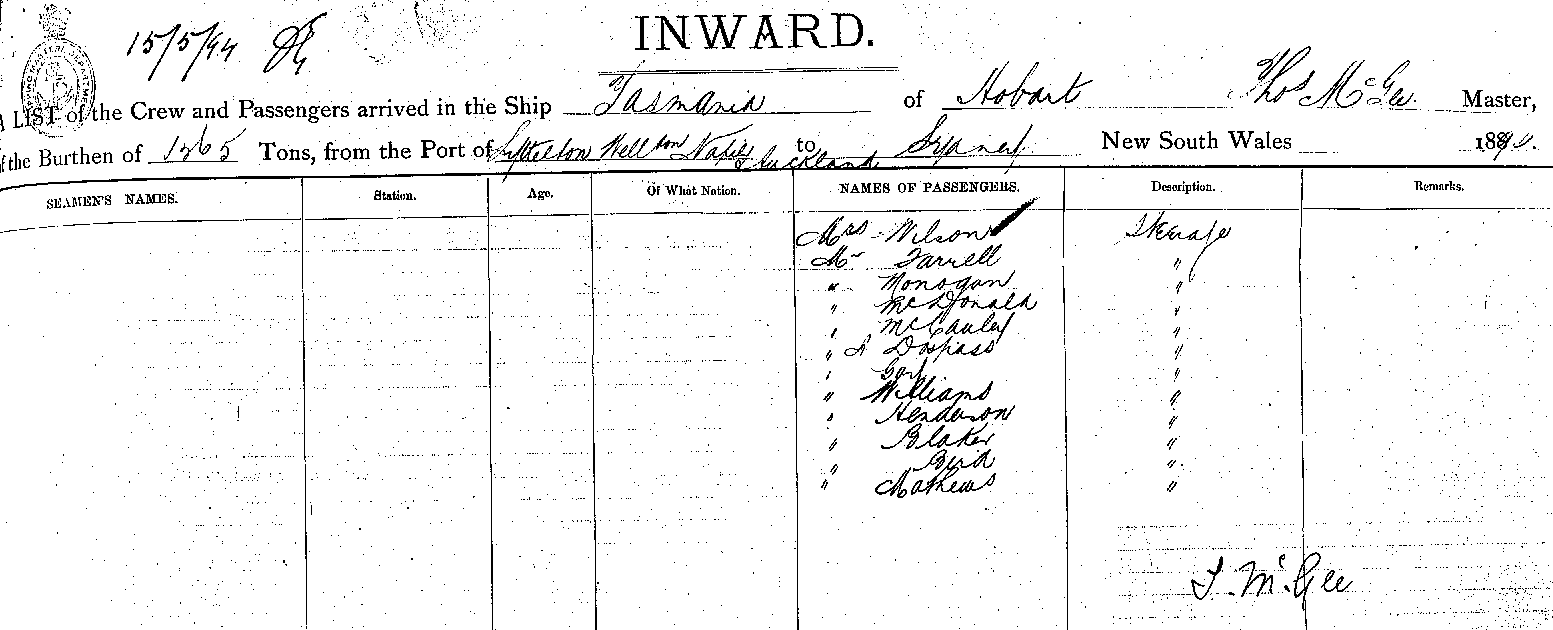 15/5/94
INWARD.
A LIST of the Crew and Passengers arrived in the Ship Tasmania of Hobart Thos McGee Master,
of the Burthen of 1265 Tons, from the Port of Lyttelton Wellton Napier Auckland to Sydney New South Wales 1894.
SEAMEN'S NAMES. Station. Age. Of What Nation. NAMES OF PASSENGERS. Description. Remarks.
Mrs Wilson Steerage
Mr Farrell "
" Monogan "
" McDonald "
" McCauley "
" A "
" "
" Williams "
" Henderson "
" Blaker "
" Bird "
" Mathews "
T. McGee